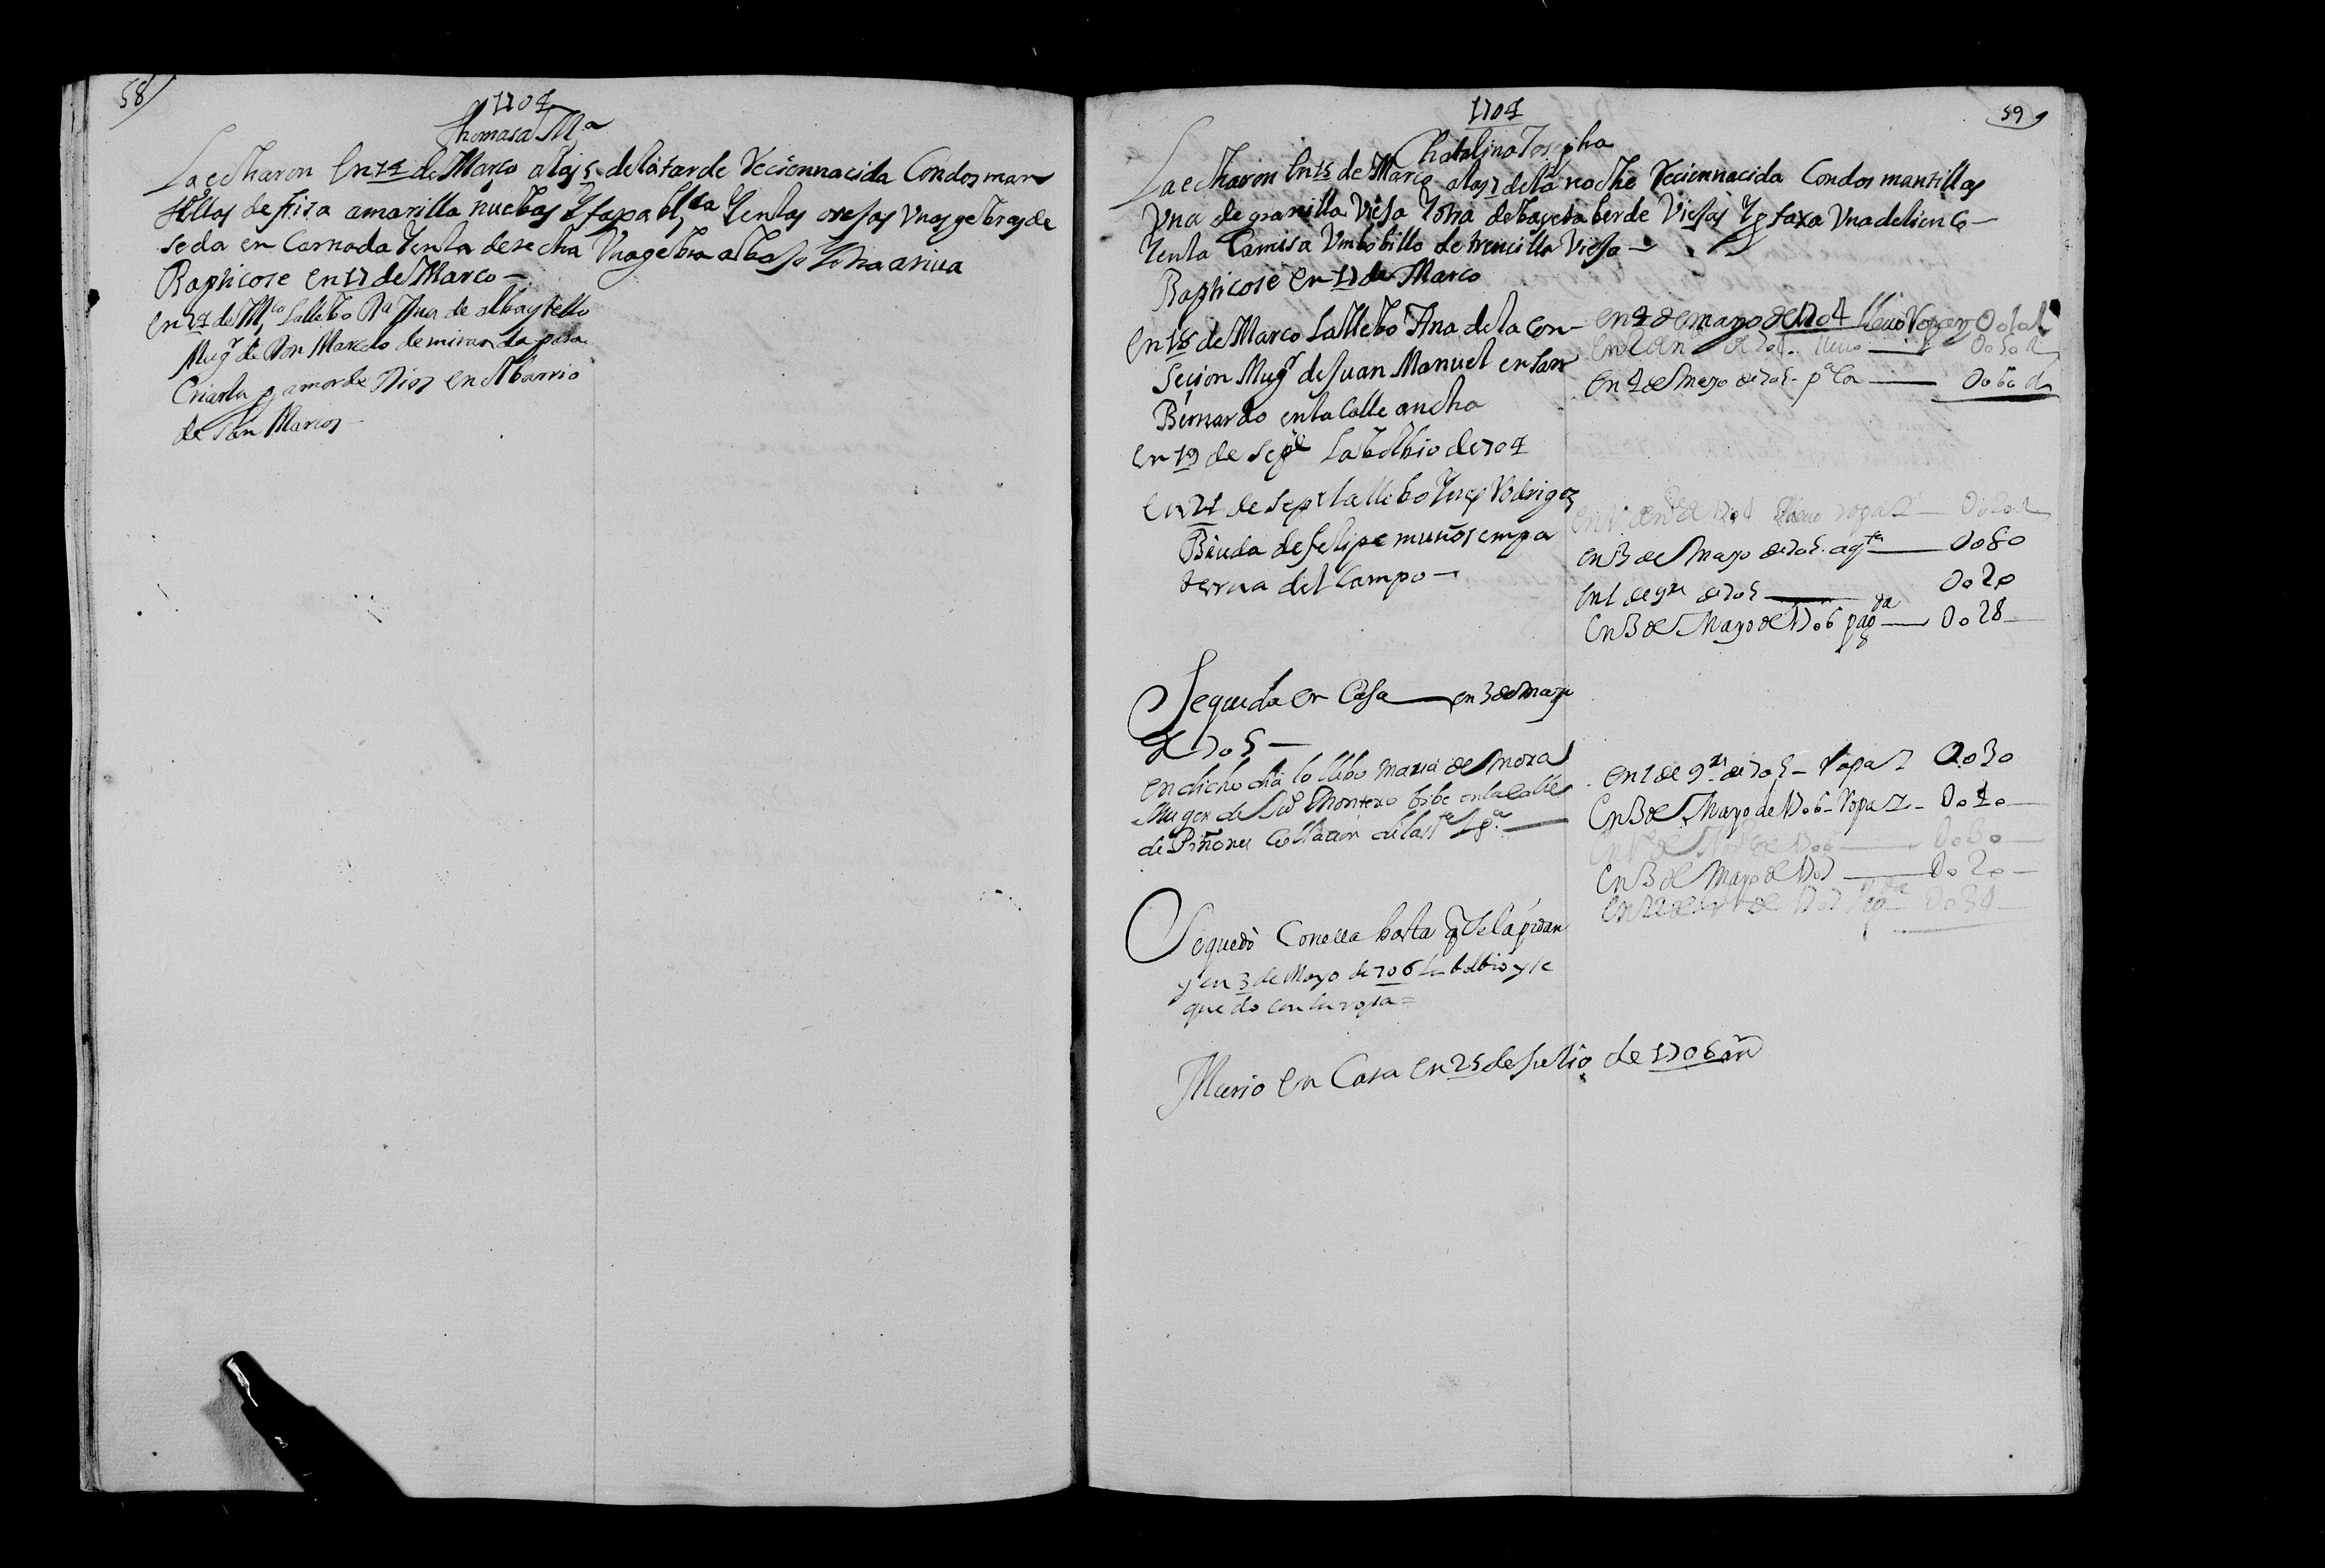 58
1704
Thomasa Mª
La echaron En 14 de Março a las 5 de la tarde Recien nacida Con dos man
tillas de frisa amarilla nuebas y faxa blca Y en las orejas Unas gebras de
seda en Carnada Y en la derecha Una gebra abajo Y otra ariva
Bapticose en 17 de Marco
En 24 de Mco La llebo Da Ana de
Mugr de Don Marcelo de miranda para
Criarla p amor de Dios en el barrio
de San Marcos
59
1704
Chatalina Josepha
La echaron En 15 de Março a las 7 de la noche Recien nacida Con dos mantillas
Una de granilla Vieja Y otra de bayeta berde Viejas Y p faxa Una de lienço
Y en la Camisa Un bobillo de trencilla Viejo
Bapticose en 17 de Marco
En 18 de Marco La llebo Ana de la Con
seçion Mugr de Juan Manuel en San
Bernardo en la Calle ancha
en 19 de Sepe La bolbio de 704
En 21 de Sepe La llebo Josepª Rodrigez
Biuda de felipe muños em pa
terna del Campo
Se queda en Casa en 3 de mayo
de 705
en dicho dia lo llebo maria de mora
Muger de Montero bibe en la calle
de Piñones Collacion de la
Se quedò Con ella hasta q se la pidan
y en 3 de Mayo de 706 la bolbio y se
quedo con la ropa =
Murio en Casa en 25 de Julio de 1706
en 4 de mayo de 1704
en 4 de Mayo de 705 0060
ropa 2
en 3 de Mayo de 705 0080
En 1 de 9re de 705 0020
En 3 de Mayo de 1706 pagda 0028
en 1 de 9re de 705 Ropa 2 0030
En 3 de Mayo de 1706 Ropa 2 0040
0030
En 3 de Mayo de 1707 0020